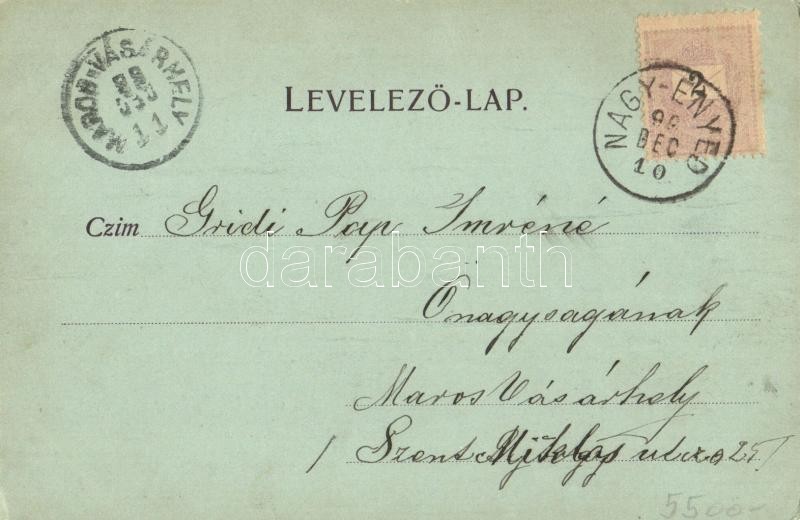 MAROS-VÁSÁRHELY
11
LEVELEZŐ-LAP.
NAGY-ENYED
DEC
10
Czim Gridi Pap Imréné
Önagyságának
Maros Vásárhely
Szent Miklós utcza 25
darabanth
5500-